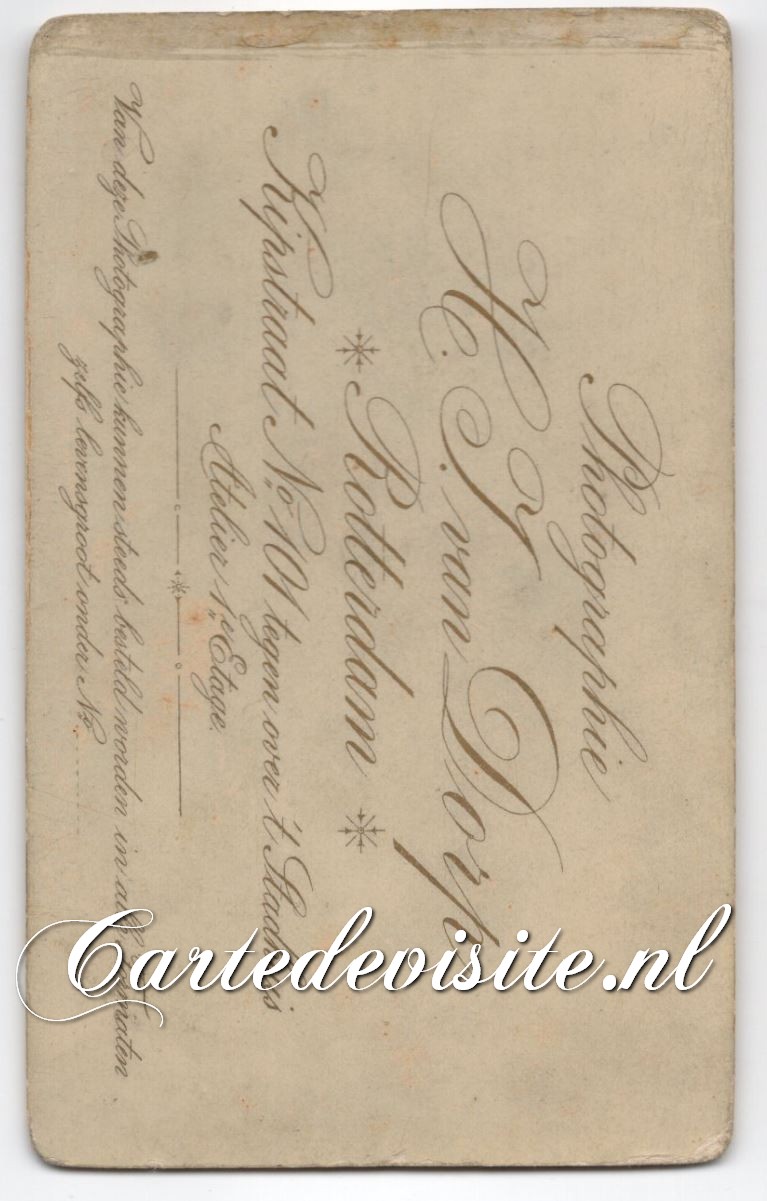 Photographie
H. J. van Dorp
Rotterdam
Kipstraat No. 101 tegen over 't Stadhuis
Atelier 1e Etage.
Van deze Photographie kunnen steeds besteld worden in alle Formaten
zelfs levensgroot onder No.
Cartedevisite.nl